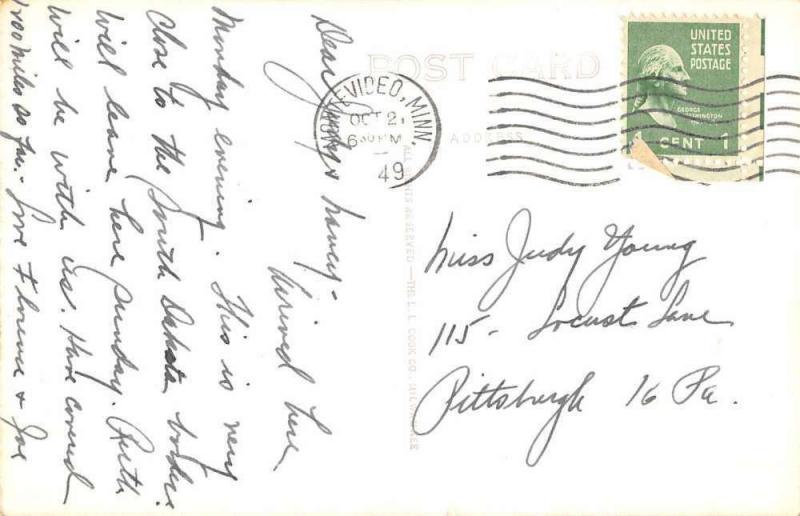 Dear Judy & Nancy-
Arrived here
Monday evening. This is very
close to the South Dakota border.
Will leave here Sunday. Ruth
will be with us. Have covered
1200 miles so far. - Love Florence & Joe
POST CARD
ADDRESS
MONTEVIDEO, MINN.
OCT 21
6 30 PM
49
UNITED
STATES
POSTAGE
GEORGE
WASHINGTON
1 CENT 1
ALL RIGHTS RESERVED - THE L. L. COOK CO., MILWAUKEE
Miss Judy Young
115 - Locust Lane
Pittsburgh 16 Pa.